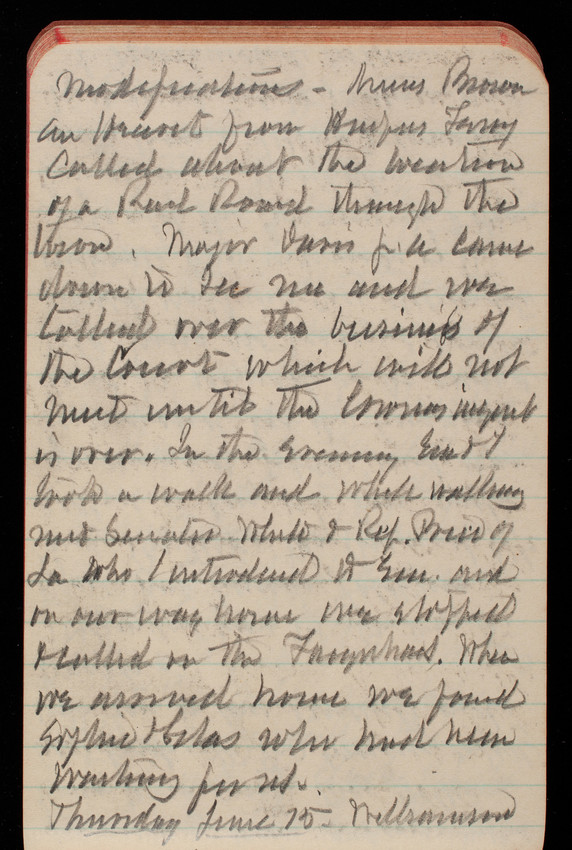 modifications - Brown
an from Rufus
Called about the location
of a Rail Road through the
town. Major Davis p. a. came
down to see me and we
talked over the business of
the Court which will not
meet until the
is over. In the evening Em & I
took a walk and while walking
met Senator White & Rep. Price of
La who I introduced to Em. and
on our way home we stopped
& called on the Farquhars. When
we arrived home we found
Sophie & Silas who had been
waiting for us.
Thursday June 15. Williamson